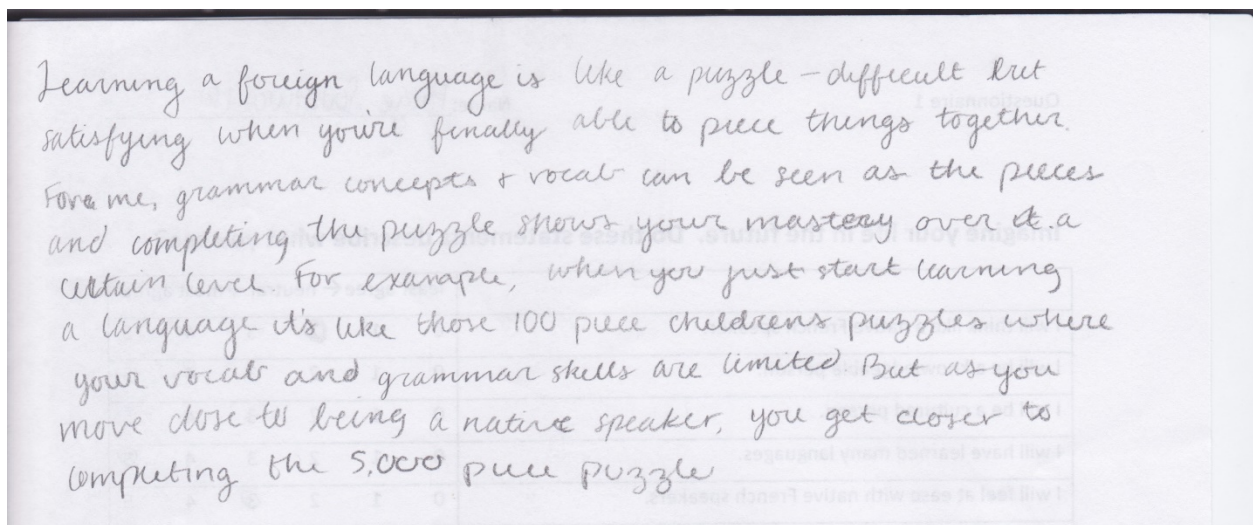 Learning a foreign language is like a puzzle – difficult but
satisfying when you're finally able to piece things together.
For me, grammar concepts + vocab can be seen as the pieces
and completing the puzzle shows your mastery over a
certain level. For example, when you just start learning
a language it's like those 100 piece childrens puzzles where
your vocab and grammar skills are limited. But as you
move close to being a native speaker, you get closer to
completing the 5,000 piece puzzle